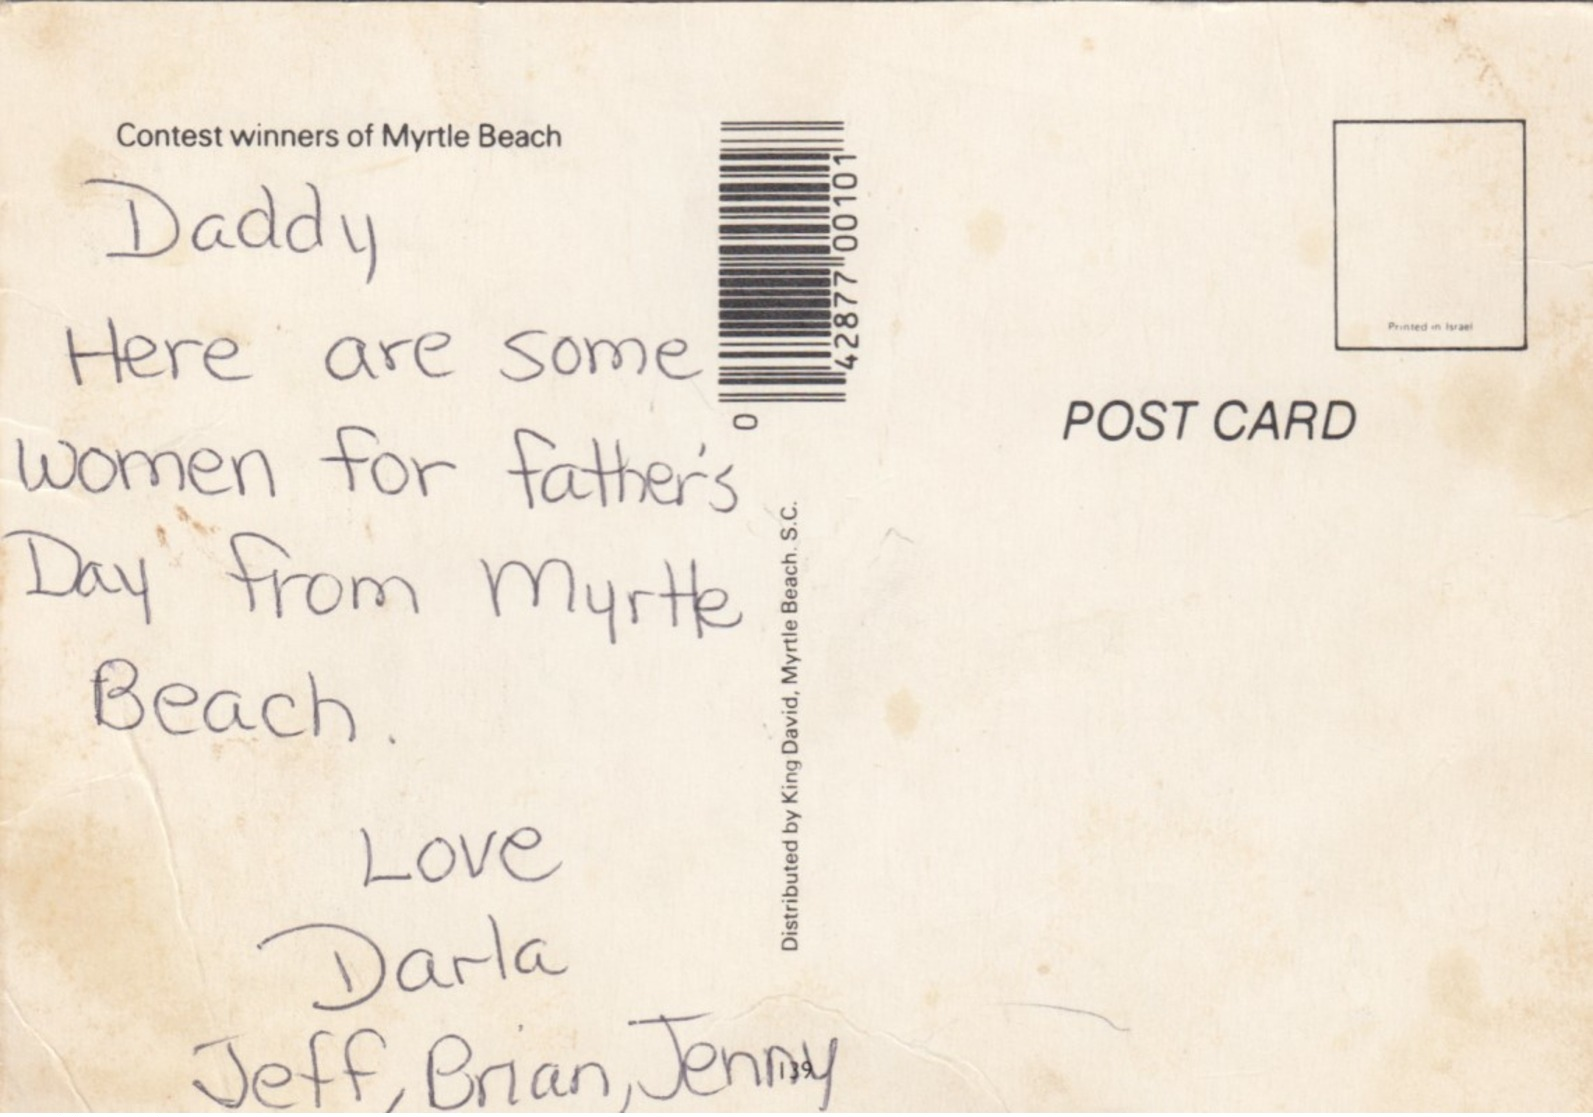 Contest winners of Myrtle Beach
Daddy
Here are some
women for father's
Day from Myrtle
Beach.
Love
Darla
Jeff, Brian, Jenny
139
0 42877 00101
Distributed by King David, Myrtle Beach. S.C.
Printed in Israel
POST CARD